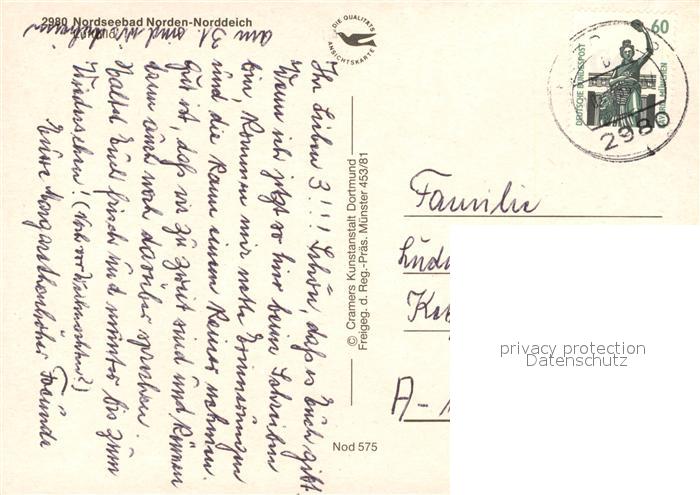 2980 Nordseebad Norden-Norddeich
DIE QUALITÄTS
ANSICHTSKARTE
60
DEUTSCHE BUNDESPOST
MÜNCHEN
2980
Ihr Lieben 3!!! Schön, daß es Euch gibt
Wenn ich jetzt so hier beim Schreiben
bin, kommen mir nette Erinnerungen
und die kann einem keiner nehmen.
Gut ist, daß wir zu zweit sind und können
dann auch noch darüber sprechen.
Haltet Euch frisch und munter bis zum
Wiedersehen! (Noch vor Weihnachten?)
Eure Margarethenhöher Freunde
am 31. sind wir
© Cramers Kunstanstalt Dortmund
Freigeg. d. Reg.-Präs. Münster 453/81
Nod 575
Familie
A-
privacy protection
Datenschutz